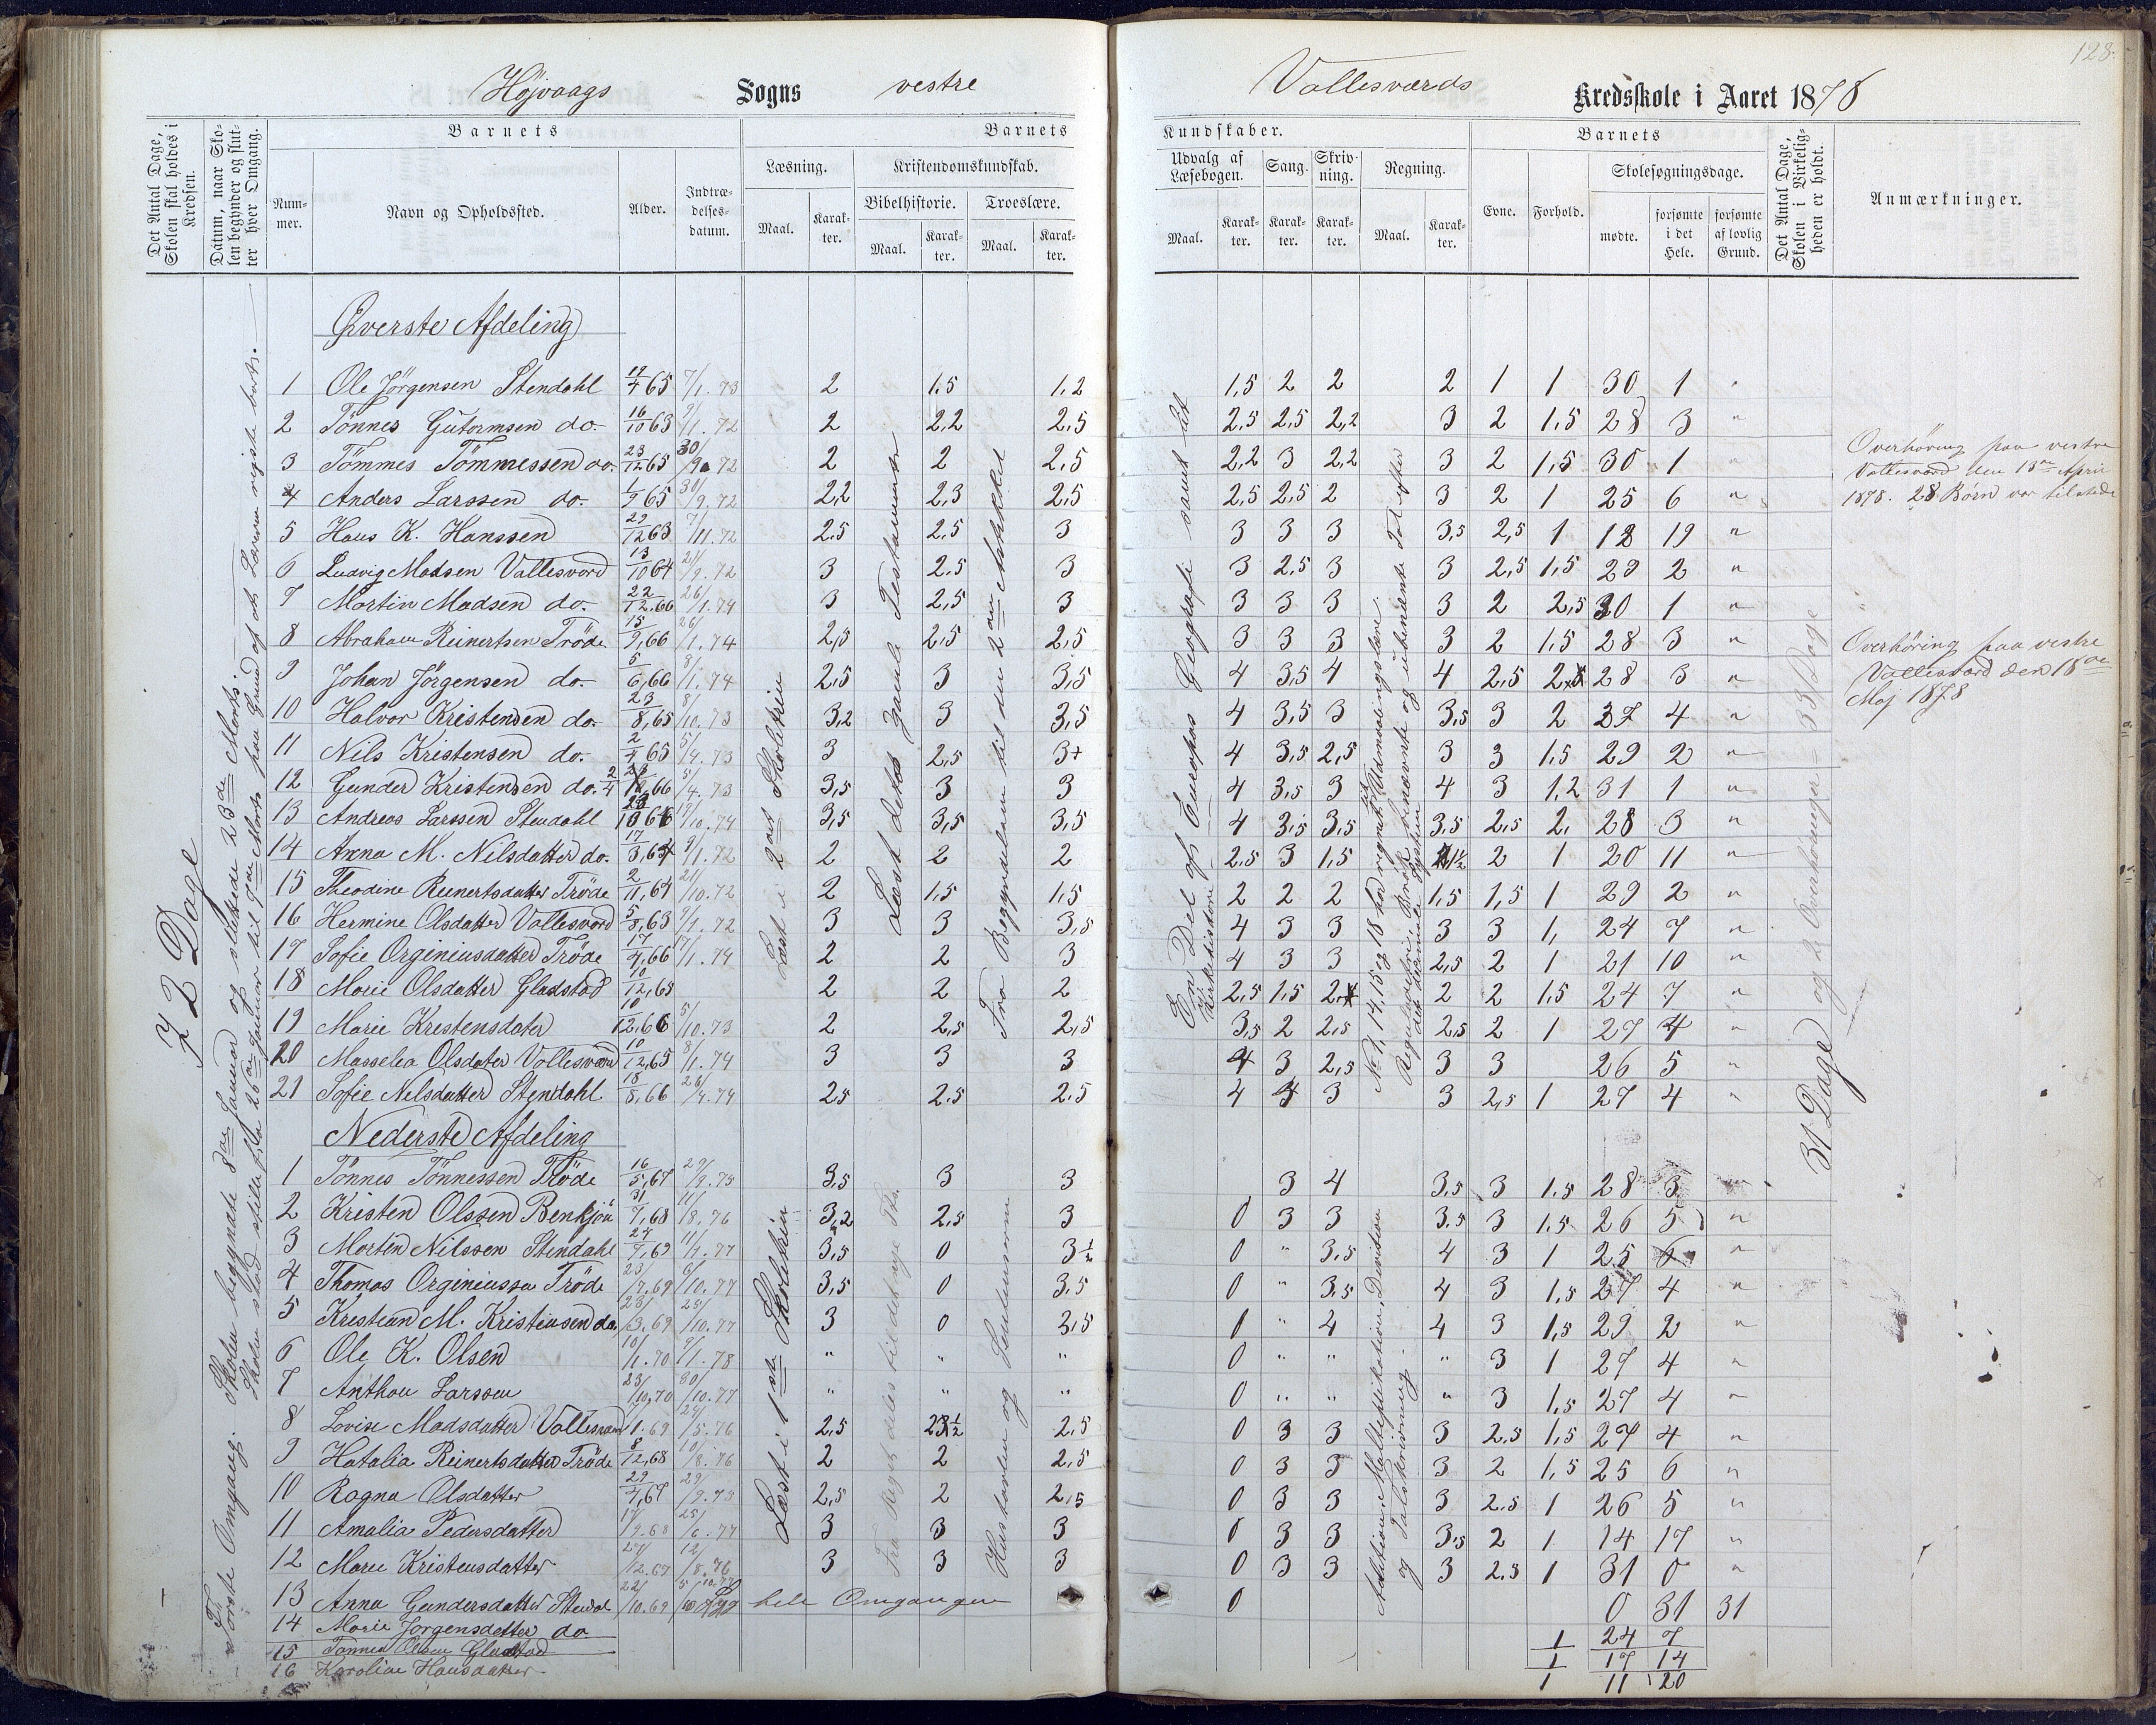 128.
Højvaags Sogns vestre Vallesværds Kredsskole i Aaret 1878
Det Antal Dage, Skolen skal holdes i Kredsen.
Datum, naar Skolen begynder og slutter hver Omgang.
Barnets
Nummer.
Navn og Opholdssted.
Alder.
Indtrædelsesdatum.
Barnets
Læsning.
Maal.
Karakter.
Kristendomskundskab.
Bibelhistorie.
Maal.
Karakter.
Troeslære.
Maal.
Karakter.
Kundskaber.
Udvalg af Læsebogen.
Maal.
Karakter.
Sang.
Karakter.
Skrivning.
Karakter.
Regning.
Maal.
Karakter.
Barnets
Evne.
Forhold.
Skolesøgningsdage.
mødte.
forsømte i det Hele.
forsømte af lovlig Grund.
Det Antal Dage, Skolen i Virkeligheden er holdt.
Anmærkninger.
72 Dage
Første Omgang. Skolen begyndte 8de Januar og sluttede 23de Marts.
Øverste Afdeling
1 Ole Jørgensen Stendahl 19/4 65 7/1.73 2 1.5 1,2 1,5 2 2 2 1 1 30 1 "
2 Tønnes Gutormsen do. 16/10 63 9/1.72 2 2,2 2,5 2,5 2,5 2,2 3 2 1,5 28 3 "
3 Tømmes Tømmessen do. 23/12 65 30/9 72 2 2 2,5 2,2 3 2,2 3 2 1,5 30 1 "
4 Anders Larssen do. 1/9 65 30/9.72 2,2 2,3 2,5 2,5 2,5 2 3 2 1 25 6 "
5 Hans K. Hanssen 29/12 63 7/11.72 2.5 2,5 3 3 3 3 3,5 2,5 1 12 19 "
6 Ludvig Madsen Vallesværd 13/10 64 21/9.72 3 2.5 3 3 2,5 3 3 2,5 1,5 29 2 "
7 Martin Madsen do. 22/12.66 26/1.74 3 2,5 3 3 3 3 3 2 2,5 30 1 "
8 Abraham Reinertsen Trøde 15/9,66 26/1.74 2,5 2,5 2,5 3 3 3 3 2 1,5 28 3 "
9 Johan Jørgensen do. 5/6,66 8/1.74 2,5 3 3,5 4 3,5 4 4 2,5 28 3 "
10 Halvor Kristensen do. 23/8,65 8/10.73 3,2 3 3,5 4 3,5 3 3,5 3 2 27 4 "
11 Nils Kristensen do. 2/4 65 5/4.73 3 2,5 3+ 4 3,5 2,5 3 3 1,5 29 2 "
12 Gunder Kristensen do. 5/4.73 3,5 3 3 4 3,5 3 4 3 1,2 31 1 "
13 Andreas Larssen Stendahl 19/10.74 3,5 3,5 3,5 4 3,5 3,5 3,5 2,5 2, 28 3 "
14 Anna M. Nilsdatter do. 17/3,64 9/1.72 2 2 2 2,5 3 1,5 2 1 20 11 "
15 Theodine Reinertsdatter Trøde 2/11,64 21/10.72 2 1,5 1,5 2 2 2 1,5 1,5 1 29 2 "
16 Hermine Olsdatter Vallesværd 5/8,63 9/1.72 3 3 3,5 4 3 3 3 3 1, 24 7 "
17 Sofie Orginiusdatter Trøde 17/4,66 17/1.74 2 2 3 4 3 3 2,5 2 1 21 10 "
18 Marie Olsdatter Gladstad 10/12,65 2 2 2 2,5 1,5 2 2 1,5 24 7 "
19 Marie Kristensdater 10/12,66 5/10.73 2 2,5 2,5 3,5 2 2,5 2,5 2 1 27 4 "
20 Masselia Olsdater Vallesværd 10/12,65 8/1.74 3 3 3 4 3 2,5 3 3 26 5 "
21 Sofie Nilsdatter Stendahl 18/8,66 26/4.74 2.5 2.5 2.5 4 3 3 2,5 1 27 4 "
Læst i 2det Skoletrin
Læst dettos gamle Testamente
Fra Begyndelsen til den 2den Artikkel
En Del af Europas Geografi samt lidt Kirkehistorie
No 1, 14, 15 og 18 har regnet lidt Udmaalingslære.
Regula de tri, Brøk, benævnte og ubenævnte Tal efter det decimale System
31 Dage og 2 Overhøringer = 33 Dage
Overhøring paa vestre
Vallesværd den 13de April
1878. 28 Børn var tilstede
Overhøring paa vestre
Vallesværd den 18de
Maj 1878
Nederste Afdeling
1 Tønnes Tønnessen Trøde 16/5,67 29/9.75 3,5 3 3 3 4 3,5 3 1.5 28 3 "
2 Kristen Olssen Benkjøn 31/7,68 11/8.76 3,2 2,5 3 0 3 3 3.5 3 1.5 26 5 "
3 Morten Nilssen Stendahl 24/7,69 11/4.77 3,5 0 3½ 0 " 3,5 4 3 1 25 6 "
4 Thomas Orginiussen Trøde 23/7.69 6/10.77 3,5 0 3,5 0 " 3,5 4 3 1,5 27 4 "
5 Kristian M. Kristensen do. 23/3.69 25/10.77 3 0 3,5 0 " 4 4 3 1,5 29 2 "
6 Ole K. Olsen 10/1.70 9/1.78 " " " 0 " " " 3 1 27 4 "
7 Anthon Larssen 23/10,70 30/10.77 " " " 0 " " " 3 1,5 27 4 "
8 Lovise Madsdatter Vallesværd 1.69 24/5.76 2,5 2,5 0 3 3 3 2.5 1,5 27 4 "
9 Hatalia Reinertsdatter Trøde 8/12,68 10/8.76 2 2 2,5 0 3 3 3 2 1,5 25 6 "
10 Ragna Olsdatter 29/4,67 29/9.75 2,5 2 2,5 0 3 3 3 2.5 1 26 5 "
11 Amalia Pedersdatter 17/9.68 25/6.77 3 3 3 0 3 3 3,5 2 1 14 17 "
12 Marie Kristensdatter 27/12.67 12/8.76 3 3 3 0 3 3 3 2.5 1 31 0 "
13 Anna Gundersdatter Stendal 22/10.69 hele Omgangen 0 0 31 31
14 Marie Jørgensdatter do. 1 24 7
15 Tønnes Olsen Gladstad 1 17 14
16 Karoline Hansdatter 1 11 20
Læst i 1ste Skoletrin
Hustavlen og
Addition, Multiplikation, Division
og Talskrivning.